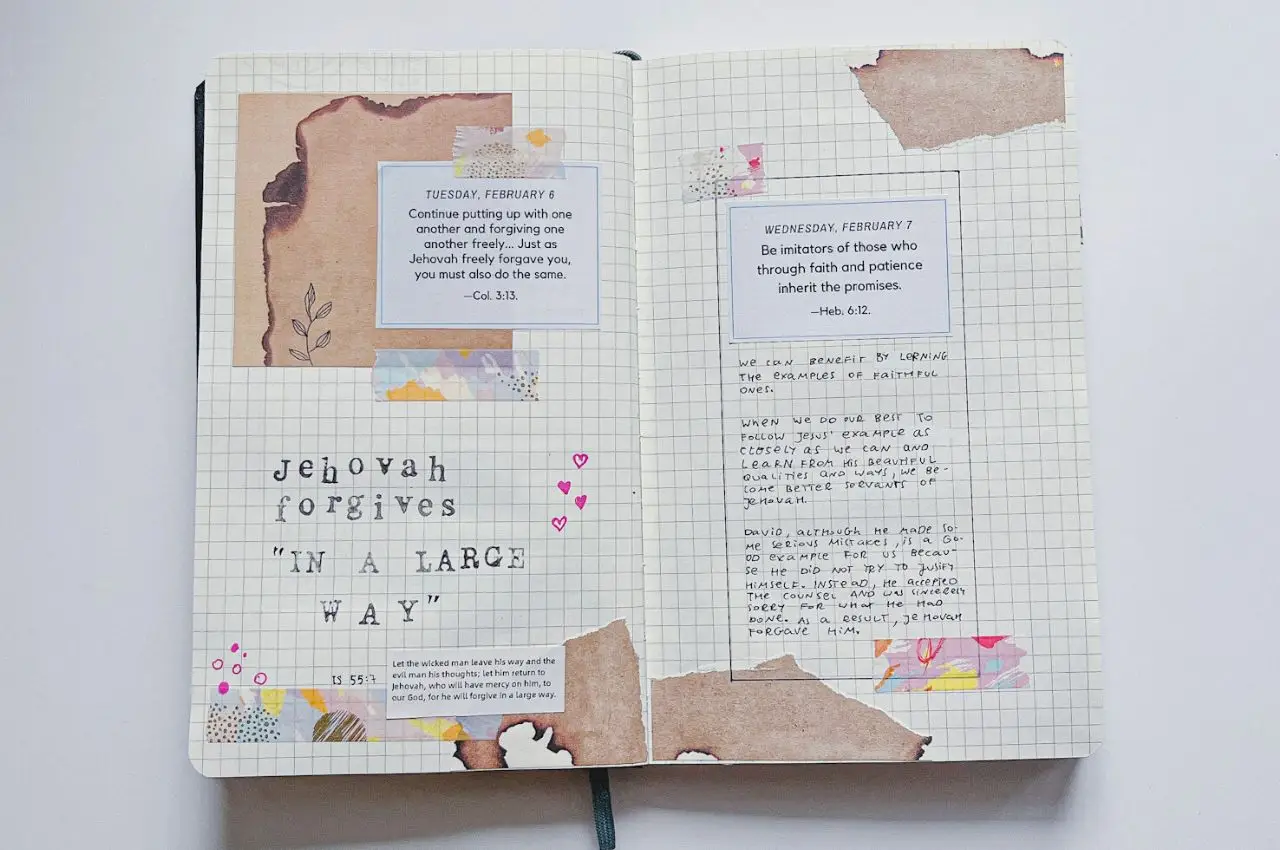 TUESDAY, FEBRUARY 6
Continue putting up with one
another and forgiving one
another freely... Just as
Jehovah freely forgave you,
you must also do the same.
—Col. 3:13.
Jehovah
forgives
"IN A LARGE
WAY"
IS 55:7
Let the wicked man leave his way and the
evil man his thoughts; let him return to
Jehovah, who will have mercy on him, to
our God, for he will forgive in a large way.
WEDNESDAY, FEBRUARY 7
Be imitators of those who
through faith and patience
inherit the promises.
—Heb. 6:12.
WE CAN BENEFIT BY LERNING
THE EXAMPLES OF FAITHFUL
ONES.
WHEN WE DO OUR BEST TO
FOLLOW JESUS' EXAMPLE AS
CLOSELY AS WE CAN AND
LEARN FROM HIS BEAUTIFUL
QUALITIES AND WAYS, WE BE-
COME BETTER SERVANTS OF
JEHOVAH.
DAVID, ALTHOUGH HE MADE SO-
ME SERIOUS MISTAKES, IS A GO-
OD EXAMPLE FOR US BECAU-
SE HE DID NOT TRY TO JUSIFY
HIMSELF. INSTEAD, HE ACCEPTED
THE COUNSEL AND WAS SINCERELY
SORRY FOR WHAT HE HAD
DONE. AS A RESULT, JEHOVAH
FORGAVE HIM.